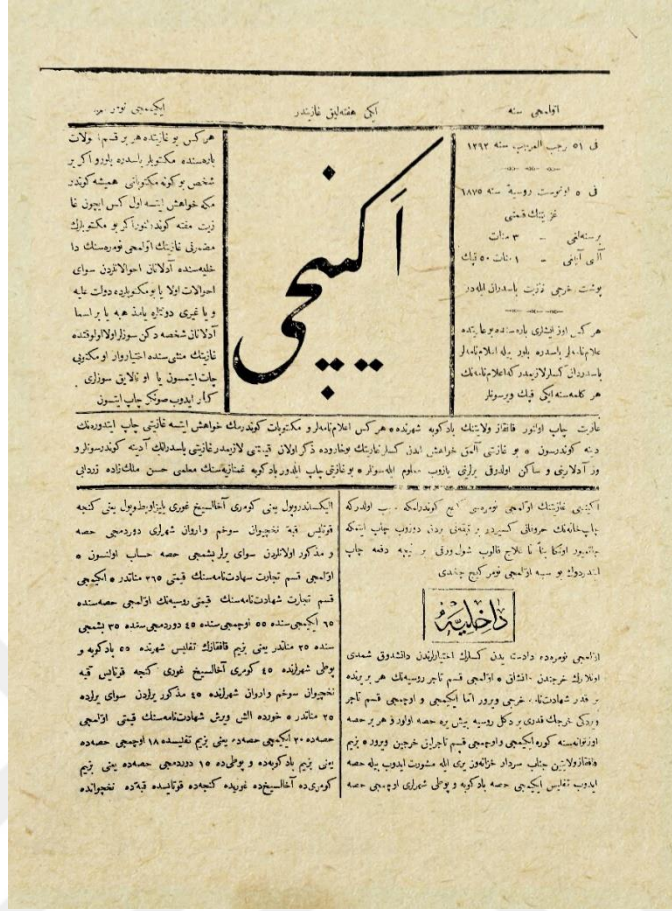 اوّلمجی سنه
اکی هفته‌لیق غازیتدر
ایکیمجی نومر
فی ۵۱ رجب المرجب سنه ۱۲۹۲
فی ۵ اوغوست روسیة سنه ۱۸۷۵
غزیتنك قیمتی
برسنه‌لغی – ۳ منات
آلتی آیلغی – ۱ منات ۵۰ قپك
پوشت خرجی غازیت باسدران ایله‌در
هر کس اوز ایشلری باره‌سنده بو غازیتده
اعلام‌نامه‌لر باسدره بلور بیله اعلام‌نامه‌لر
باسدردان کسلر لازمدر که اعلام‌نامه‌نك
هر کلمه‌سنه ایکی قپك ویرسونلر
اَکینچی
هر کس بو غازیتده هر بر قسم احوالات
باره‌سنده مکتوبلر باسدره بلور و اکر بر
شخص بو کونه مکتوباتی همیشه کوندر
مکه خواهش ایتسه اول کس ایچون غا
زیت مفته کوندرلنور اکر بو مکتوبلرك
مضمونی غازیتنك اوّلمجی نومره‌سنك دا
خلیه‌سنده آدلانان احوالاتلردن سوای
احوالات اولا یا بو مکتوبلرده دولت علیه
و یا غیری دولتلره یامذهبه یا بر اسما
آدلانان شخصه دکن سوزلر اولا اولوقتده
غازیتنك منشی‌سنده اختیار وار او مکتوبی
چاپ ایتمسون یا او نالایق سوزلری
کنار ایدوب صونکر چاپ ایتسون
غازیت چاپ اولنور قافقاز ولایتنك بادکوبه شهرنده ٭ هر کس اعلام‌نامه‌لر و مکتوبات کوندرمك خواهش ایتسه غازیتی چاپ ایتدورمك
دینه کوندرسون ٭ بو غازیتی آلمق خواهش ایدن کسلر غازیتك یوخاروده ذکر اولان قیمتنی لازمدر غازیتی باسدرانك آدینه کوندرسونلر و
اوز آدلارینی و ساکن اولدوقی یرلرنی یازوب معلوم ایله‌سونلر ٭ بو غازیتی چاپ ایلدور بادکوبه غمنازیه‌سنك معلمی حسن ملك‌زاده زردابی
اکینچی غازیتنك اوّلمجی نومره‌سی کج کوندرلمکه سبب اولدر که
چاپ‌خانه‌نك حروفاتی
چاپ
ایتدردوك بو سببه اوّلمجی نومر کیج چخدی
دٰاخِلِیَّهٔ
اوّلمجی نومره‌ده دادستد ایدن کسلرك اختیارلرندن دانشدوق شمدی
اونلارك خرجندن دانشاق ٭ اوّلمجی قسم تاجر روسیه‌نك هر یرینده
بر قدر شهادت‌نامه خرجی ویرور امّا ایکیمجی و اوچمجی قسم تاجر
ویردکی خرجك قدری بر دکل روسیه بیش یره حصه اولور و هر حصه
اوز توانه‌سنه کوره ایکیمجی و اوچمجی قسم تاجرلرین خرجین ویرور ٭ بزیم
قافقاز ولایتین جناب سردار خزانه‌نور یری ایله مشورت ایدوب بیله حصه
ایدوب تفلیس ایکیمجی حصه بادکوبه و پوطی شهرلری اوچمجی حصه
الیکساندروپول یعنی کومری آخالسیخ غوری یلیزاوطوپول یعنی کنجه
قوتایس قبه نخچیوان سوخم و اروان شهرلری دوردمجی حصه
و مذکور اولانلردن سوای یرلر بشمجی حصه حساب اولنسون ٭
اوّلمجی قسم تجارت شهادت‌نامه‌سنك قیمتی ۲۶۵ مناتدر ٭ ایکیمجی
قسم تجارت شهادت‌نامه‌سنك قیمتی روسیه‌نك اوّلمجی حصه‌سنده
۶۵ ایکیمجی‌سنده ۵۵ اوچمجی‌سنده ۴۵ دوردمجی‌سنده ۳۵ بشمجی
سنده ۲۵ مناتدر یعنی بزیم قافقازك تفلیس شهرنده ۵۵ بادکوبه و
پوطی شهرلرنده ۴۵ کومری آخالسیخ غوری کنجه قوتایس قبه
نخچیوان سوخم و اروان شهرلرنده ۳۵ مذکور یرلردن سوای یرلرده
۲۵ مناتدر ٭ خورده آلش ویرش شهادت‌نامه‌سنك قیمتی اوّلمجی
حصه‌ده ۲۰ ایکیمجی حصه‌ده یعنی بزیم تفلیسده ۱۸ اوچمجی حصه‌ده
یعنی بزیم بادکوبه‌ده و پوطی‌ده ۱۵ دوردمجی حصه‌ده یعنی بزیم
کومری‌ده آخالسیخ‌ده غوریده کنجه‌ده قوتایسده قبه‌ده نخچوانده